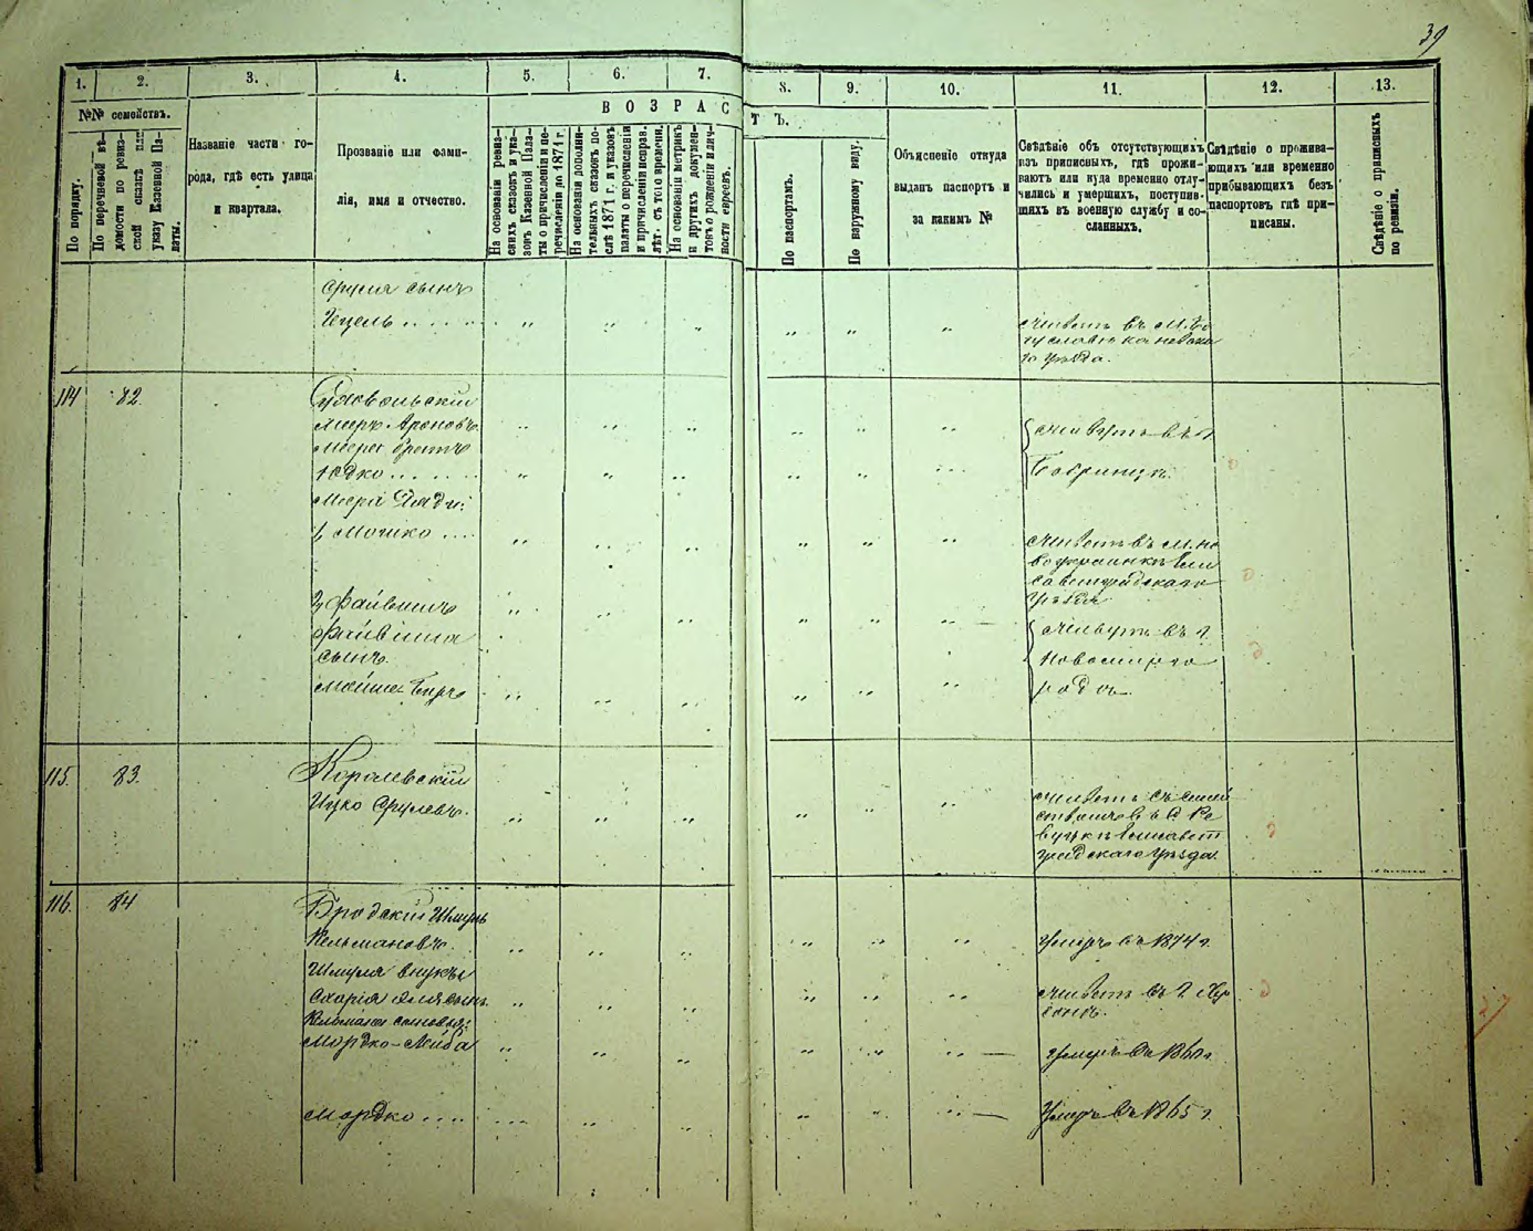 39
1. 2. 3. 4. 5. 6. 7. 8. 9. 10. 11. 12. 13.
№№ семействъ.
По порядку.
По перечневой вѣ-
домости по ревиз-
ской сказкѣ или
указу Казенной Па-
латы.
Названіе части го-
рода, гдѣ есть улица
и квартала.
Прозваніе или фами-
лія, имя и отчество.
ВОЗРАСТЪ.
На основаніи ревиз-
скихъ сказокъ и ука-
зовъ Казенной Пала-
ты о причисленіи и пе-
речисленіи до 1871 г.
На основаніи дополни-
тельныхъ сказокъ по-
слѣ 1871 г. и указовъ
палаты о перечисленіи
и причисленіи исправ.
лѣт. съ того времени.
На основаніи метрикъ
и другихъ докумен-
товъ о рожденіи и лич-
ности евреевъ.
По паспортамъ.
По наружному виду.
Объясненіе откуда
выданъ паспортъ и
за какимъ №
Свѣдѣніе объ отсутствующихъ
изъ приписныхъ, гдѣ прожи-
ваютъ или куда временно отлу-
чились и умершихъ, поступив-
шихъ въ военную службу и со-
сланныхъ.
Свѣдѣніе о прожива-
ющихъ или временно
прибывающихъ безъ
паспортовъ гдѣ при-
писаны.
Свѣдѣніе о приписныхъ
по ревизіи.
Сруля сынъ
Гецель . . . .
Живетъ въ м. Бо
гуславѣ каневска
го уѣзда.
114 82.
Мееръ Ароновъ.
Меера братъ
Юдко . . . . . .
Живутъ въ г.
Бобринцѣ.
Меера дяди:
1, Мошко . . . .
Живетъ въ м. Но
воукраинкѣ Ели
саветградскаго
уѣзда
2, Файвишъ
Файвиша
сынъ
Мойше Беръ
Живутъ въ г.
Новомирго
родѣ.
115. 83.
Королевскій
Ицко Срулевъ.
Живетъ съ семей
ствомъ въ с. Ре
вуцкѣ Елисавет
градскаго уѣзда.
116. 84
Бродскій Шмуль
Кельмановъ.
Умеръ въ 1874 г.
Шмуля внукъ
Живетъ въ г. Хер
сонѣ.
Кельмана сыновья:
Мордко-Лейба
Умеръ въ
Мордко . . . .
Умеръ въ 1865 г.